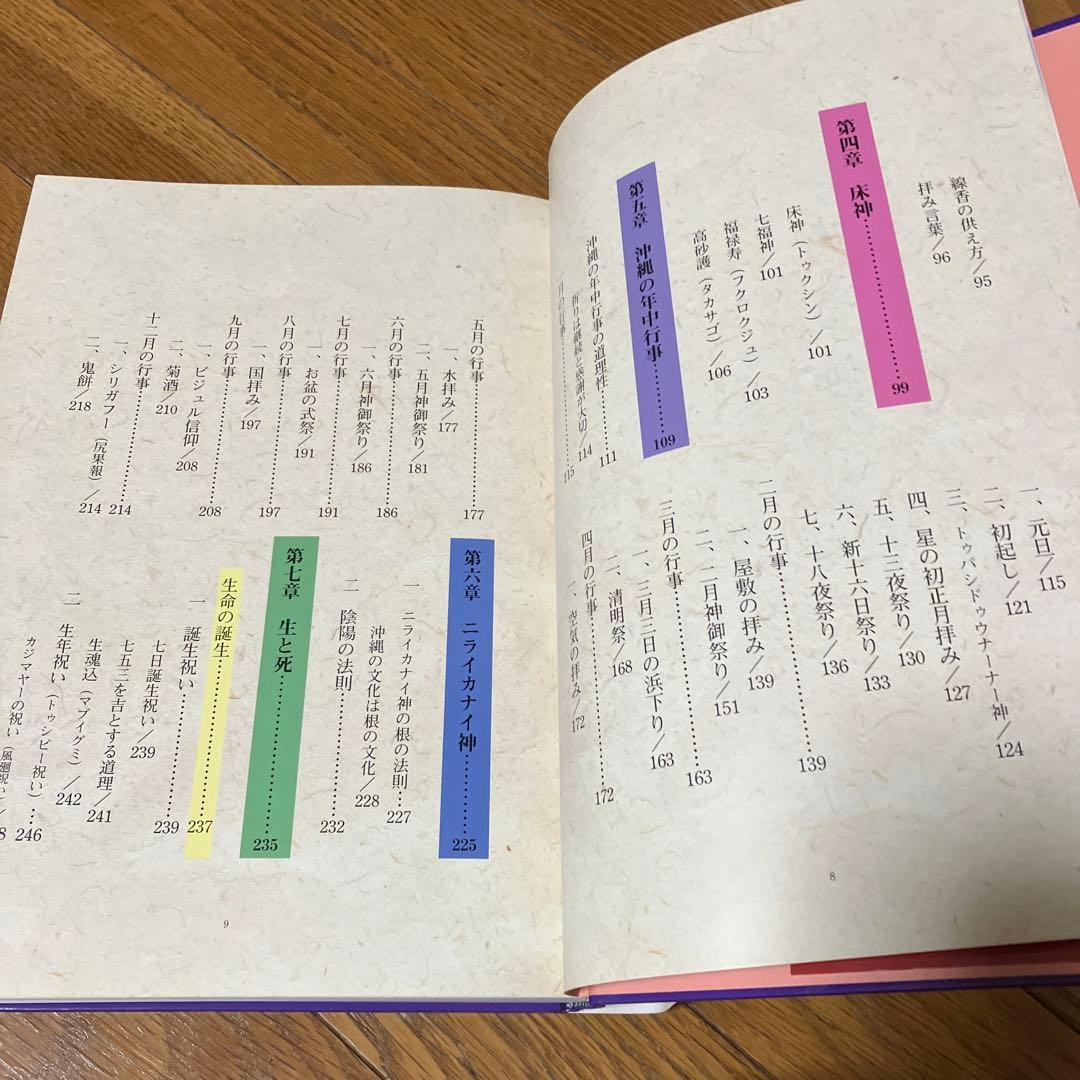 線香の供え方/95
拝み言葉/96
第四章 床神………………99
床神(トゥクシン)/101
七福神/101
福禄寿(フクロクジュ)/103
高砂護(タカサゴ)/106
第五章 沖縄の年中行事…………109
沖縄の年中行事の道理性…………111
祈りは継続と感謝が大切/114
月の行事………………115
一、元日/115
二、初起し/121
三、トゥパンドゥウナーナー神/124
四、星の初正月拝み/127
五、十三夜祭り/130
六、新十六日祭り/133
七、十八夜祭り/136
二月の行事………………139
一、屋敷の拝み/139
二、二月神御祭り/151
三月の行事………………163
一、三月三日の浜下り/163
二、清明祭/168
四月の行事………………172
、空気の拝み/172
8
五月の行事………………177
一、水拝み/177
二、五月神御祭り/181
六月の行事………………186
一、六月神御祭り/186
七月の行事………………191
一、お盆の式祭/191
八月の行事………………197
一、国拝み/197
九月の行事………………208
一、ビジュル信仰/208
二、菊酒/210
十二月の行事………………214
一、シリガフー(尻果報)/214
二、鬼餅/218
第六章 ニライカナイ神…………225
一 ニライカナイ神の根の法則……227
沖縄の文化は根の文化/228
二 陰陽の法則………………232
第七章 生と死………………235
生命の誕生………………237
一 誕生祝い………………239
七日誕生祝い/239
七五三を吉とする道理/241
生魂込(マブイグミ)/242
二 生年祝い(トゥシビー祝い)…246
カジマヤーの祝い(風廻祝い)/
9